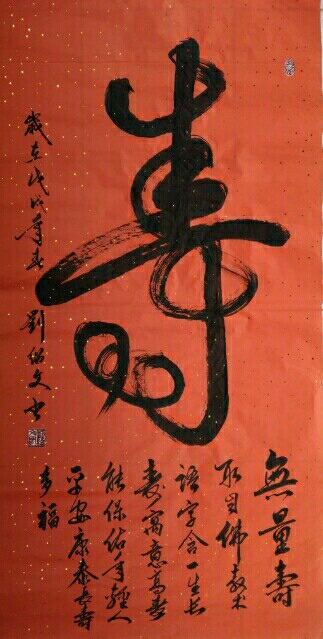 壽
無量壽
取自佛教术
語字含一生长
寿寓意高寿
能保佑年輕人
平安康泰长壽
多福
歲在戊戌年春
劉紹文书